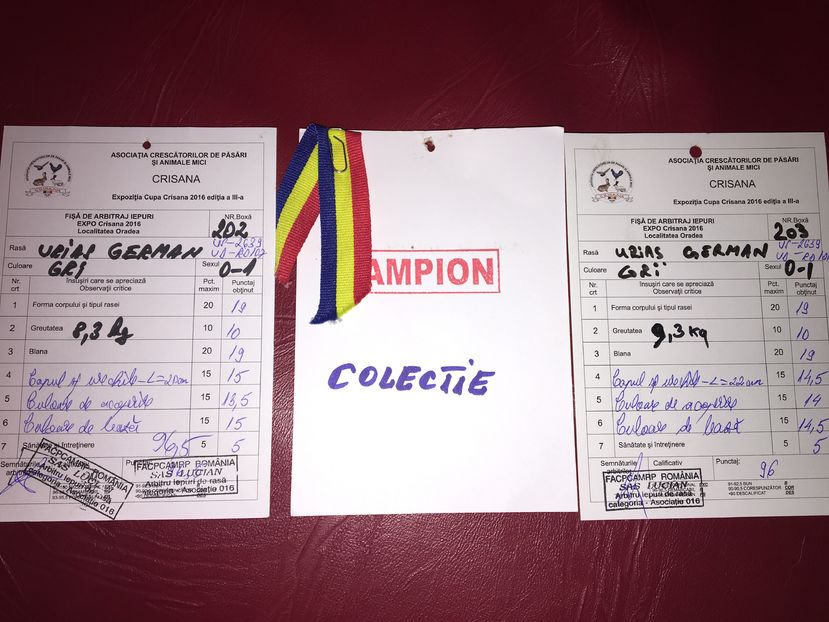 ASOCIAȚIA CRESCĂTORILOR DE PĂSĂRI
ȘI ANIMALE MICI
CRISANA
Expoziția Cupa Crisana 2016 ediția a III-a
FIȘĂ DE ARBITRAJ IEPURI
EXPO Crisana 2016
Localitatea Oradea
NR.Boxă
202
VS-2639
Rasă URIAS GERMAN
Culoare GRI
Sexul 0-1
Nr. crt
Însușiri care se apreciază
Observații critice
Pct. maxim
Punctaj obținut
1 Forma corpului și tipul rasei 20 19
2 Greutatea 8,3 kg 10 10
3 Blana 20 19
4 Capul și urechile - L = 20 cm 15 15
5 Culoare de acoperire 15 13,5
6 Culoare de bază 15 15
7 Sănătate și întreținere 5 5
96,5
Semnăturile
FACPCAMRP ROMÂNIA
SAS LUCIAN
Arbitru Iepuri de rasă
categoria - Asociație 016
FACPCAMRP ROMÂNIA
SAS LUCIAN
Arbitru Iepuri de rasă
categoria - Asociație 016
AMPION
COLECTIE
ASOCIAȚIA CRESCĂTORILOR DE PĂSĂRI
ȘI ANIMALE MICI
CRISANA
Expoziția Cupa Crisana 2016 ediția a III-a
FIȘĂ DE ARBITRAJ IEPURI
EXPO Crisana 2016
Localitatea Oradea
NR.Boxă
203
VS-2639
Rasă URIAS GERMAN
Culoare GRII
Sexul 0-1
Nr. crt
Însușiri care se apreciază
Observații critice
Pct. maxim
Punctaj obținut
1 Forma corpului și tipul rasei 20 19
2 Greutatea 9,3 kg 10 10
3 Blana 20 19
4 Capul și urechile - L = 22 cm 15 14,5
5 Culoare de acoperire 15 14
6 Culoare de bază 15 14,5
7 Sănătate și întreținere 5 5
Semnăturile arbitrilor Calificativ Punctaj: 96
FACPCAMRP ROMÂNIA
SAS LUCIAN
Arbitru Iepuri de rasă
categoria - Asociație 016
91-92,5 BUN B
90-90,5 CORESPUNZĂTOR COR
<90 DESCALIFICAT DES